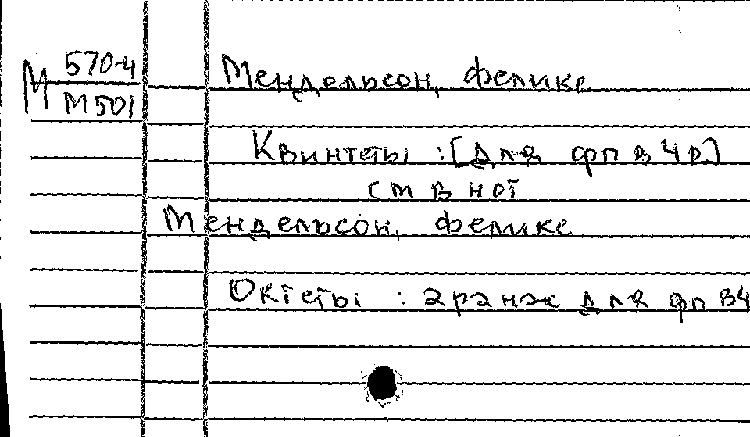 М 570-4
М501
Мендельсон, Феликс
Квинтеты : [для фп в 4 р.]
см в нот
Мендельсон, Феликс
Октеты : аранж для фп в4